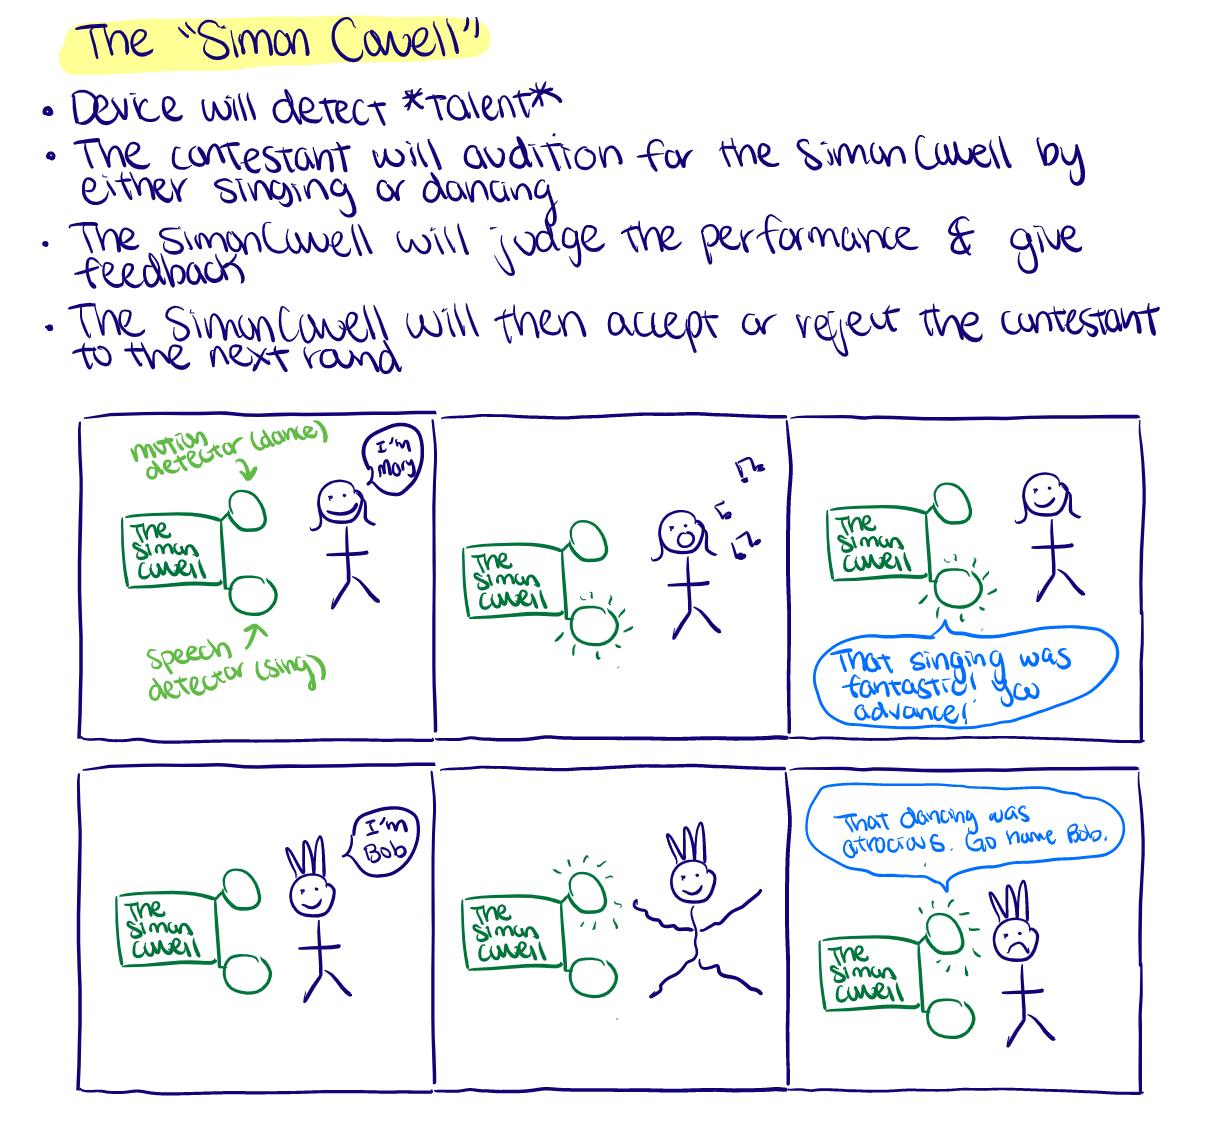 The "Simon Cowell"
• Device will detect *Talent*
• The contestant will audition for the SimonCowell by
either singing or dancing
• The SimonCowell will judge the performance & give
feedback
• The SimonCowell will then accept or reject the contestant
to the next round
motion
detector (dance)
I'm
Mary
The
Simon
Cowell
speech
detector (sing)
The
Simon
Cowell
The
Simon
Cowell
That singing was
fantastic! You
advance!
I'm
Bob
The
Simon
Cowell
The
Simon
Cowell
That dancing was
atrocious. Go home Bob.
The
Simon
Cowell